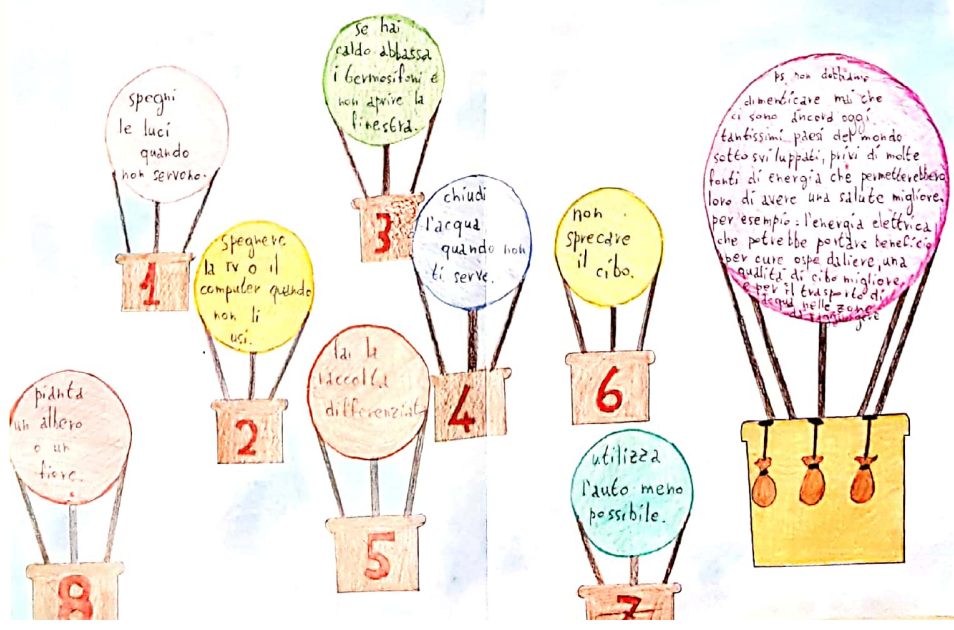 speghi
le luci
quando
non servono.
1
spegnere
la TV o il
computer quando
non li
usi.
2
se hai
caldo abbassa
i termosifoni e
non aprire la
finestra.
3
chiudi
l'acqua
quando non
ti serve.
4
fai la
raccolta
differenziata
5
non
sprecare
il cibo.
6
utilizza
l'auto meno
possibile.
7
pianta
un albero
o un
fiore.
8
ps. non dobbiamo
dimenticare mai che
ci sono ancora oggi
tantissimi paesi del mondo
sottosviluppati, privi di molte
fonti di energia che permetterebbero
loro di avere una salute migliore,
per esempio: l'energia elettrica
che potrebbe portare beneficio
per cure ospedaliere, una
qualità di cibo migliore,
e per il trasporto di
acqua nelle zone
da raggiungere